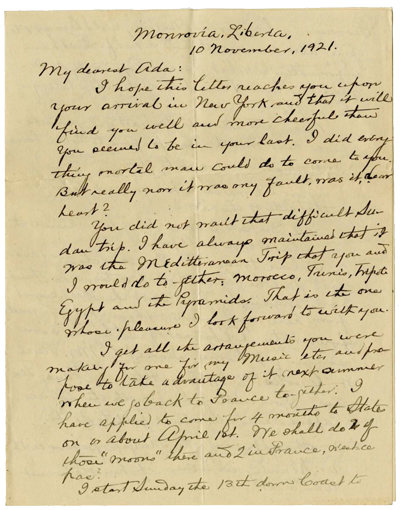 Monrovia, Liberia,
10 November, 1921.
My dearest Ada:
I hope this letter reaches you upon
your arrival in New York and that it will
find you well and more cheerful than
you seemed to be in your last. I did every
thing mortal man could do to come to you.
But really nor it was my fault, was it, dear
heart?
You did not that difficult Su-
dan trip. I have always maintained that it
was the Mediterranean Trip that you and
I would do to-gether, Morocco, Tunis, Tripoli
Egypt and the Pyramids. That is the one
whose pleasure I look forward to with you.
I get all the arrangements you were
making for me for my Music etc and pro-
pose to take advantage of it next summer
when we go back to France to-gether. I
have applied to come for 4 months to States
on or about April 1st. We shall do 2 of
those "moons" there and 2 in France, n'est-ce
pas?
I start Sunday the 13th down Coast to